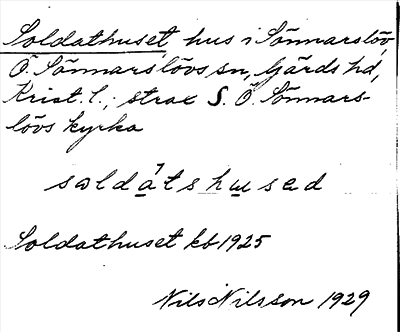 Soldathuset, hus i Sönnarslöv,
Ö. Sönnarslövs sn, Gärds hd,
Krist. l.; strax S. Ö. Sönnars-
lövs kyrka
soldatshused
Soldathuset kb 1925
Nils Nilsson 1929